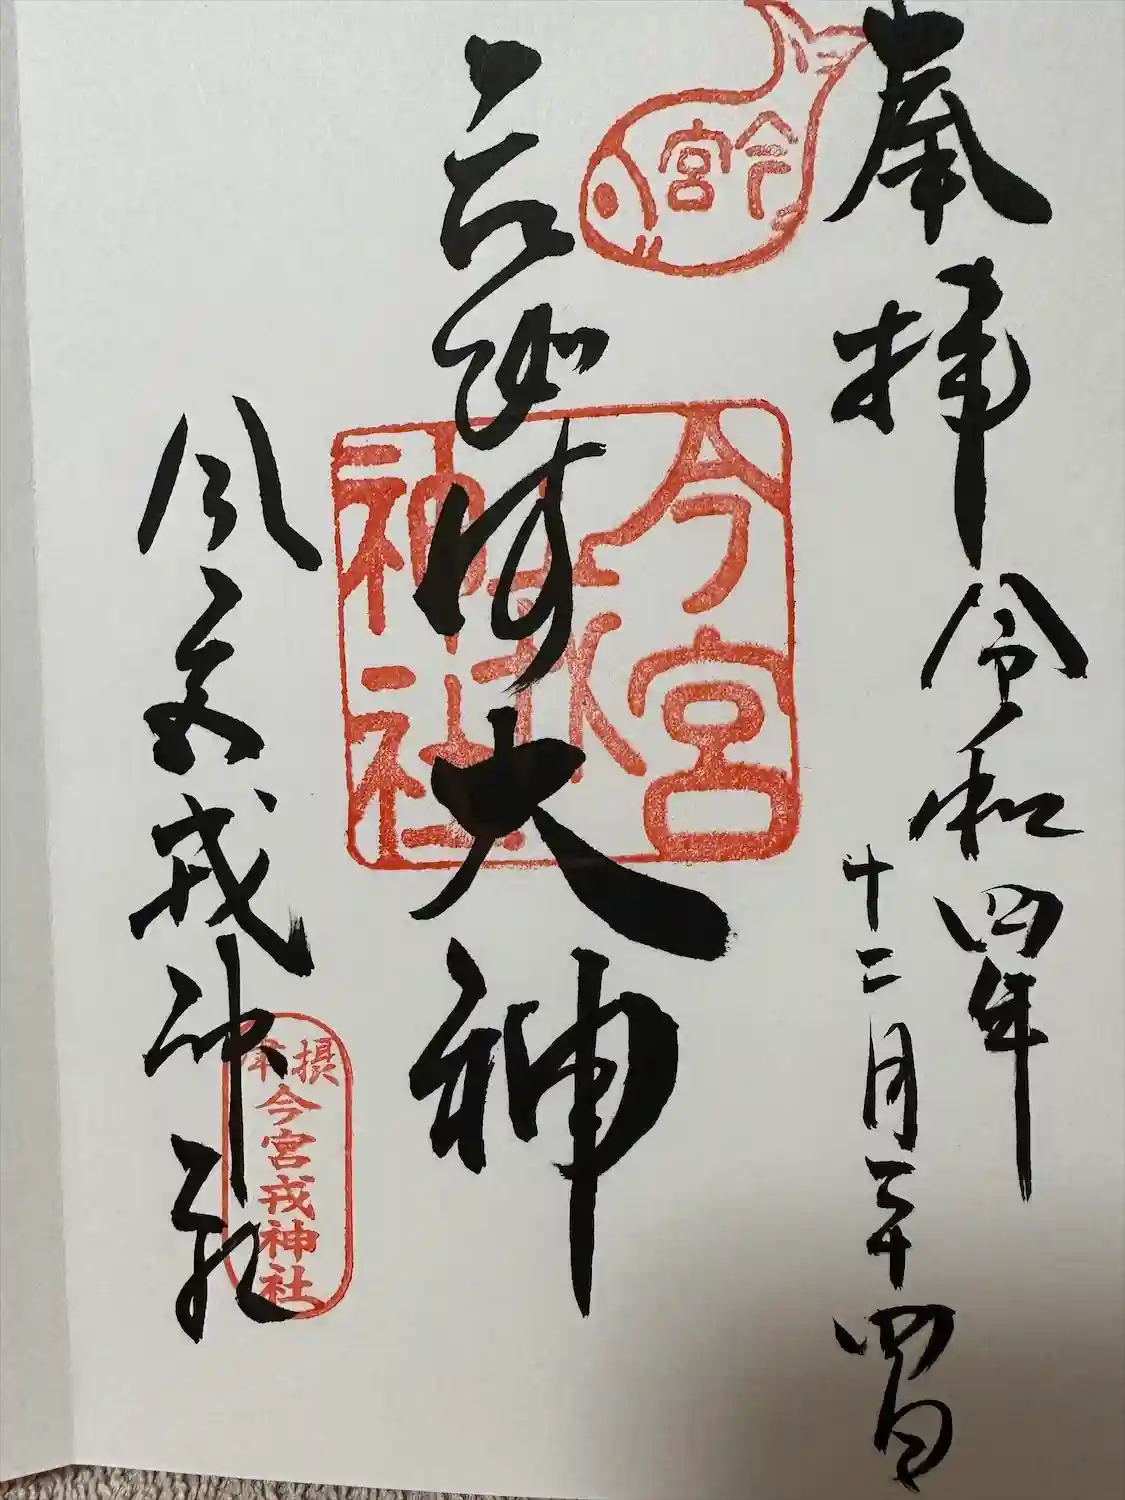 奉拝
令和四年
十二月二十四日
今宮
大神
今宮
戎
神社
今宮戎神社
摂津
今宮戎神社